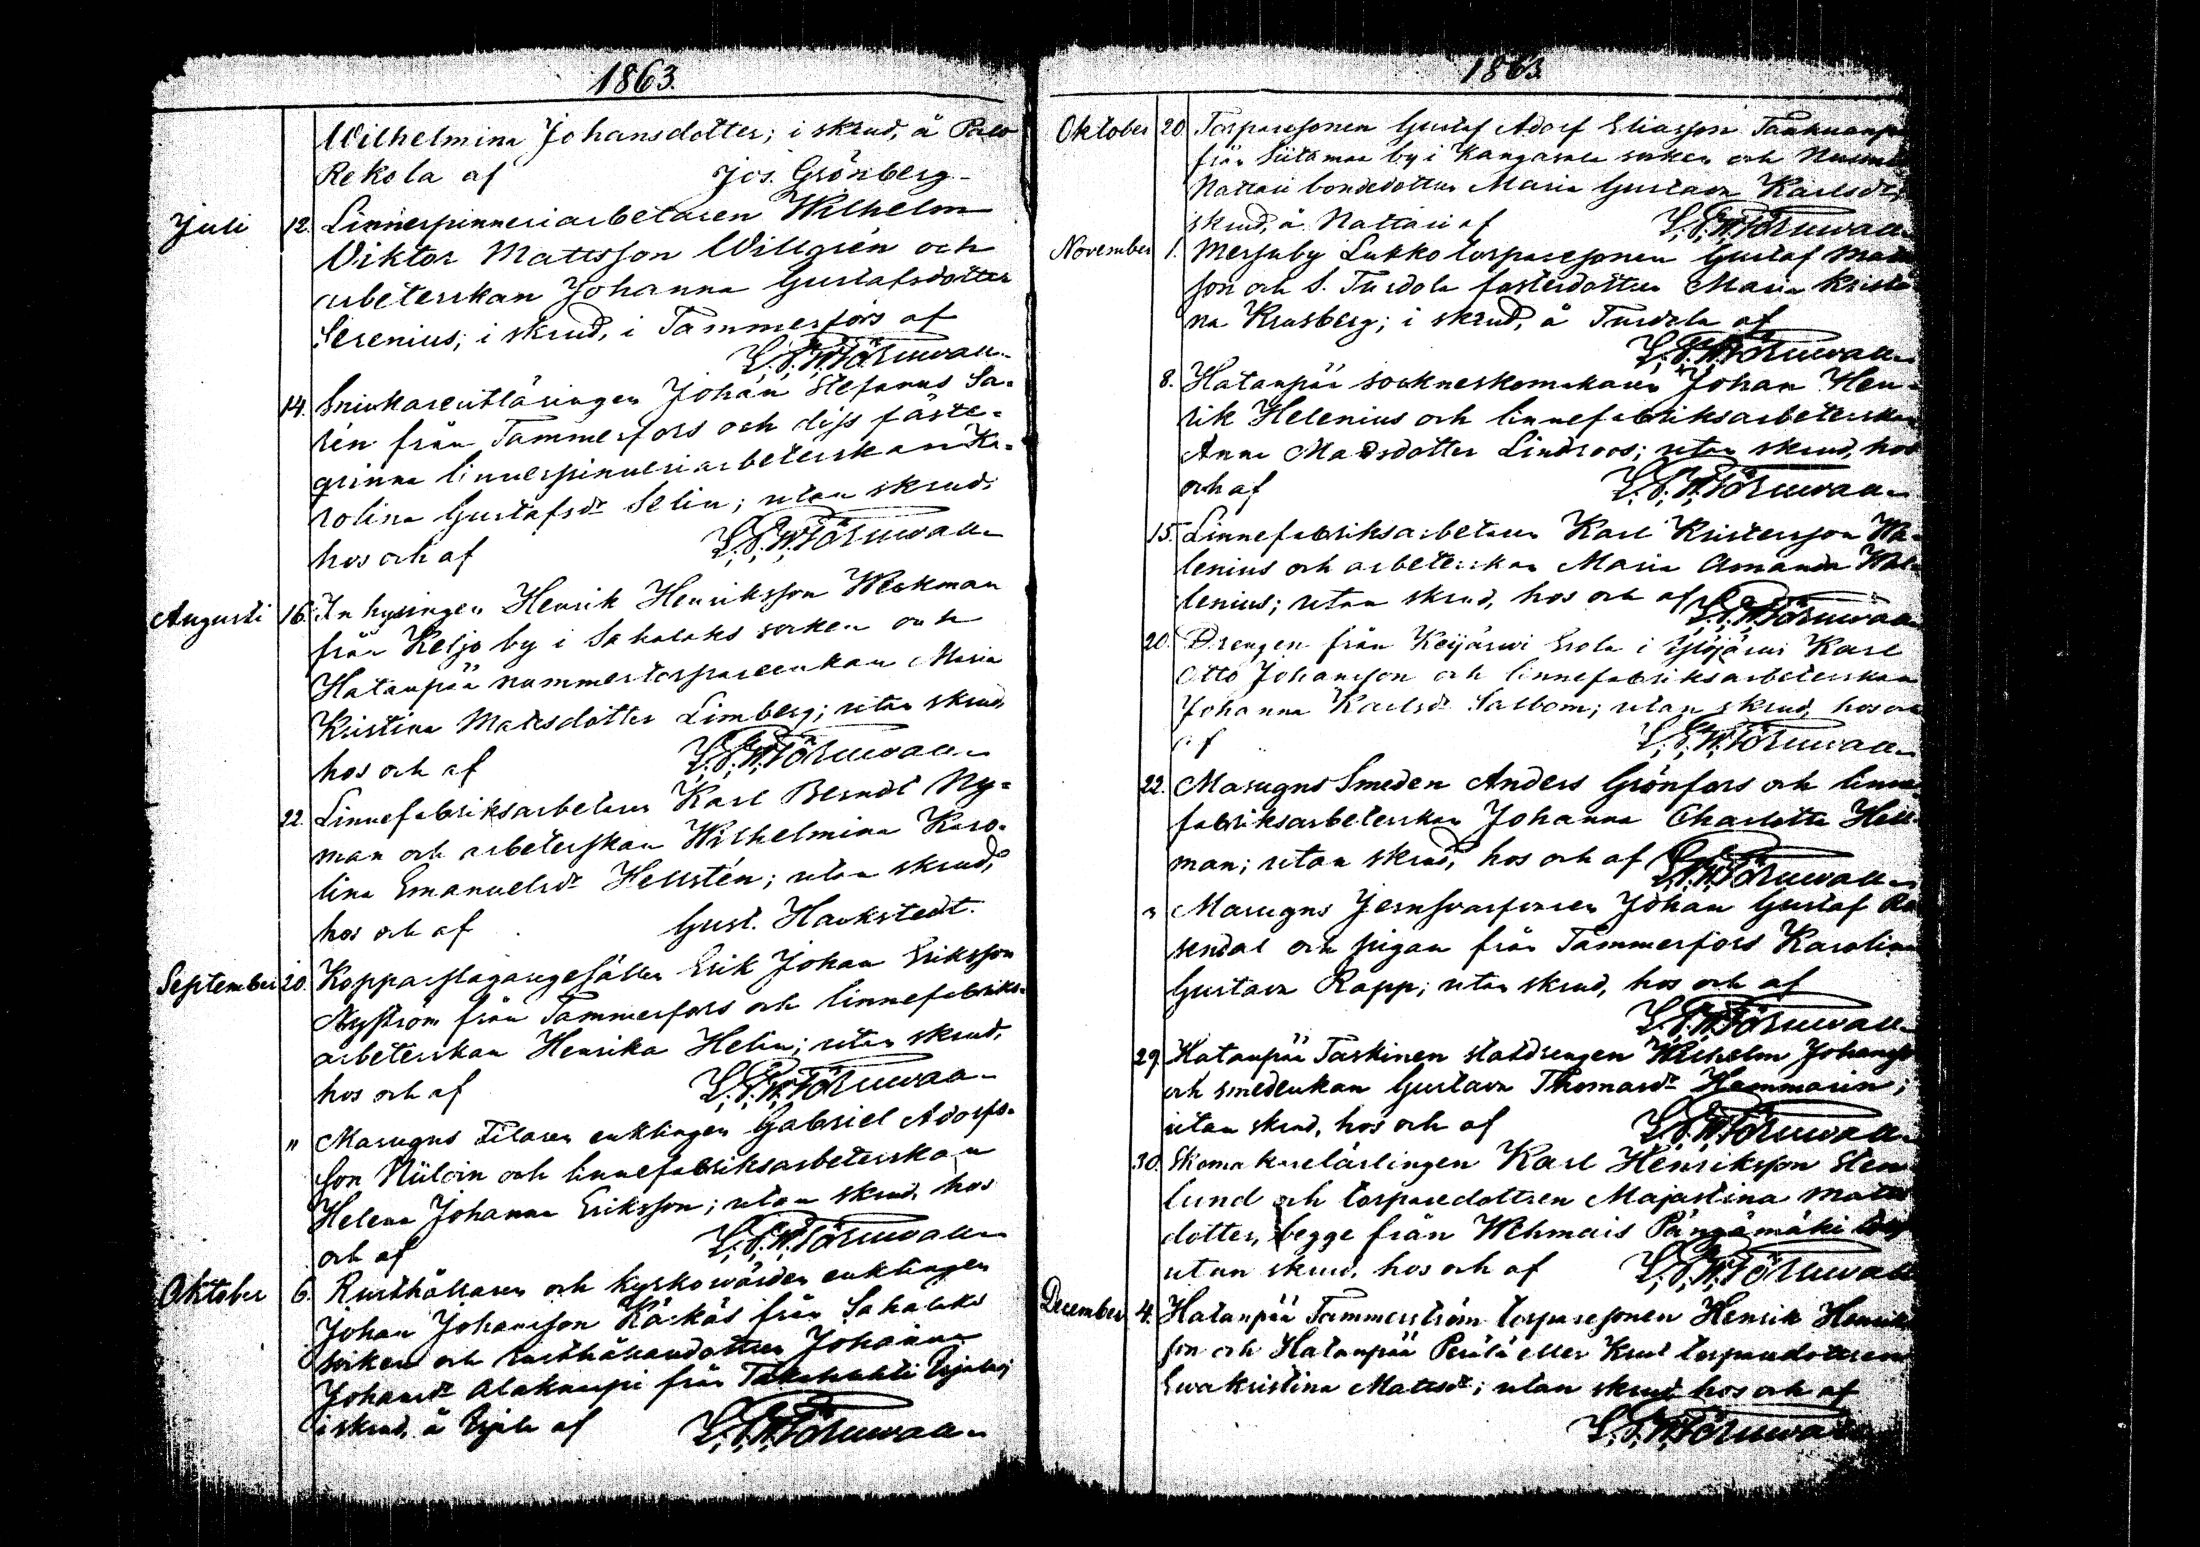 1863.
Wilhelmina Johansdotter; i skrud, å Palo
Rekola af Jos. Grönberg.
Juli 12. Linnespinneriarbetaren Wilhelm
Viktor Mattsson Willgrén och
arbeterskan Johanna Gustafsdotter
Serenius; i skrud, i Tammerfors af
L. P. W. Törnwall
14. Snickareutläringen Johan Stefanus Sa-
rén från Tammerfors och diss fäste-
qrinna linnespinneriarbeterskan Ka-
rolina Gustafsdr Selin; utan skrud,
hos och af L. P. W. Törnwall
Augusti 16. Inhysingen Henrik Henriksson Weckman
från Keljo by i Sahalaks socken och
Hatanpää nummertorpareenkan Maria
Kristina Mattsdotter Limberg; utan skrud
hos och af L. P. W. Törnwall
22. Linnefabriksarbetaren Karl Berndt Ny-
man och arbeterskan Wilhelmina Karo-
lina Emanuelsdr Hellstén; utan skrud,
hos och af Gust. Hackstedt.
September 20. Kopparslagaregesällen Erik Johan Eriksson
Nyström från Tammerfors och linnefabriks-
arbeterskan Henrika Helin; utan skrud,
hos och af L. P. W. Törnwall
" Masugns Filaren enklingen Gabriel Adolfs-
son och linnefabriksarbeterskan
Helena Johanna Eriksson; utan skrud, hos
och af L. P. W. Törnwall
Oktober 6. Rusthållaren och kyrkowärden enklingen
Johan Johansson Käckäs från Sahalaks
socken och rusthållaredottren Johanna
Johansdr Alakaupi från Takahuhti
i skrud, å af L. P. W. Törnwall
1863
Oktober 20 Torparesonen Gustaf Adolf Eliasson
från Siitamaa by i Kangasala socken och
Nattari bondedottren Maria Gustava Karlsdr,
skrud, å Nattari af L. P. W. Törnwall
November 1. Messuby Lukko torparesonen Gustaf Mats
son och S. Turdola fosterdottren Maria Kristi
na Krusberg; i skrud, å Turdola af
L. P. W. Törnwall
8. Hatanpää sockneskomakaren Johan Hen-
rik Helenius och linnefabriksarbeterskan
Anna Matsdotter Lindroos; utan skrud, hos
och af L. P. W. Törnwall
15. Linnefabriksarbetaren Karl Kristersson Wa-
lenius och arbeterskan Maria Amanda Wal-
lenius; utan skrud, hos och af L. P. W. Törnwall
20. Drengen från Keijärwi Erola i Ylöjärwi Karl
Otto Johansson och linnefabriksarbeterskan
Johanna Karlsdr Salbom; utan skrud, hos och
af L. P. W. Törnwall
22. Masugns Smeden Anders Grönfors och linne-
fabriksarbeterskan Johanna Charlotta Hell-
man; utan skrud, hos och af L. P. W. Törnwall
" Masugns Jernswarfwaren Johan Gustaf Ro
sendal och pigan från Tammerfors Karolina
Gustava Rapp; utan skrud, hos och af
L. P. W. Törnwall
29. Hatanpää Taskinen statdrengen Wilhelm Johansson
och smedenkan Gustava Thomasdr Hammarin;
utan skrud, hos och af L. P. W. Törnwall
30. Skomakarelärlingen Karl Henriksson Sten
lund och torparedottren Majastina Mats
dotter, begge från Wehmais Pängämäki torp
utan skrud, hos och af L. P. W. Törnwall
December 4. Hatanpää Tammerström torparesonen Henrik Henriks
son och Hatanpää Perälä eller Knut torparedottren
Ewa Kristina Mattsdr; utan skrud hos och af
L. P. W. Törnwall